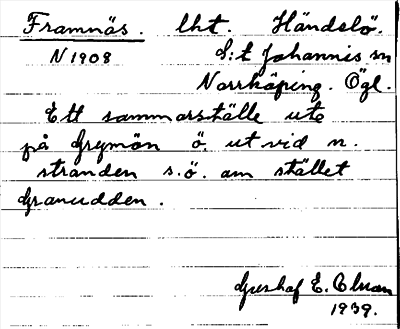 Framnäs. lht. Händelö.
N 1908 S:t Johannis sn
Norrköping. Ögl.
Ett sommarställe ute
på Grymön ö. ut vid n.
stranden s.ö. om stället
Granudden.
Gustaf E.
1939.